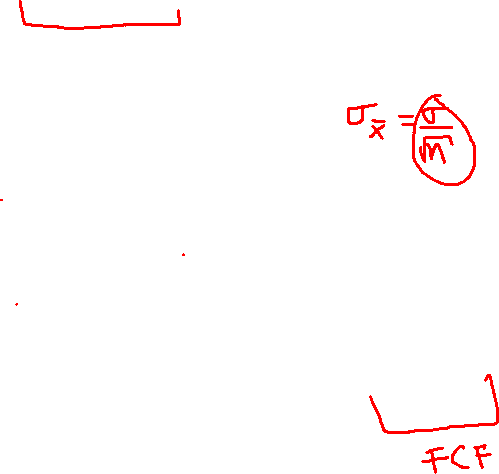 σx̄ = σ/√n
FCF